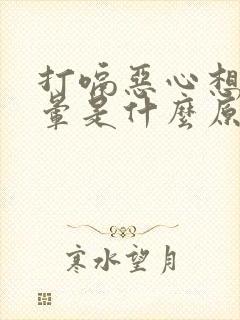 打嗝惡心想
暈是什麼原
寒水望月